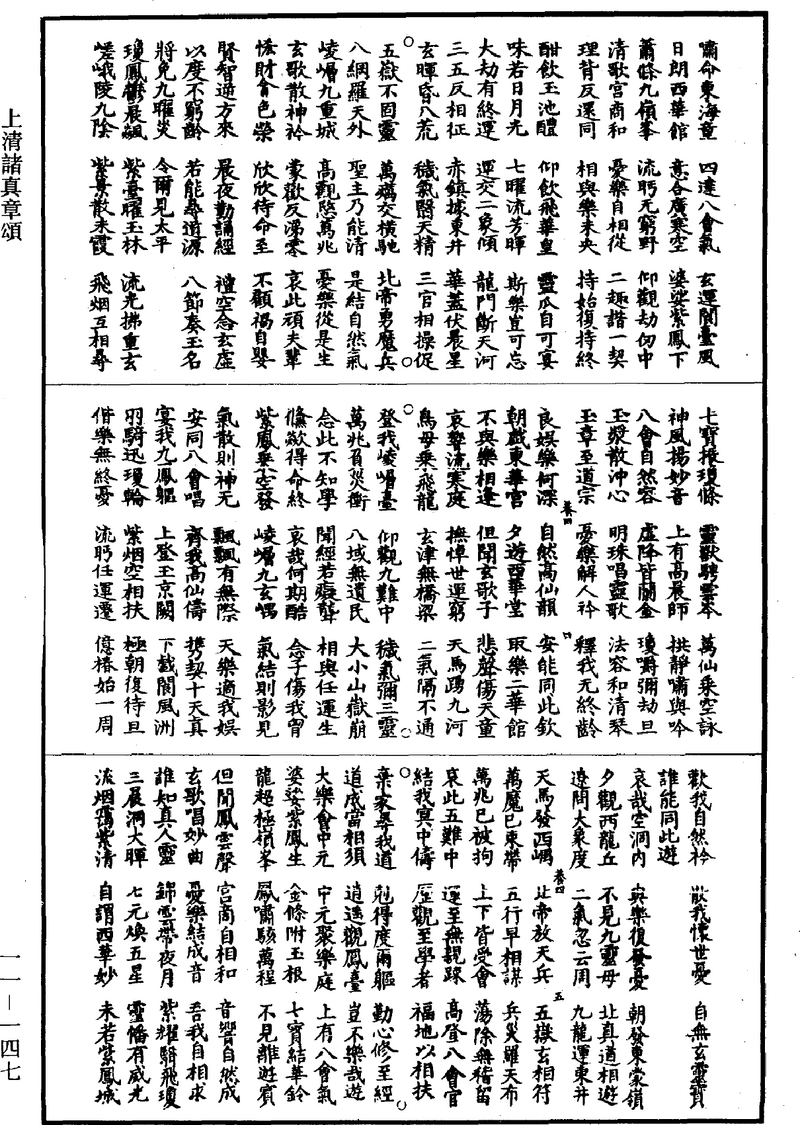 上清諸真章頌
嘯命東海童　四達八會氣　玄運閬臺風
日朗西華館　意合廣寒空　婆娑紫鳳下
蕭條九嶺峯　流眄无窮野　仰觀劫仞中
清歌宮商和　憂樂自相從　二趣諧一契
理背反還同　相與樂未央　持始復持終
酣飲玉池醴　仰飲飛華皇　靈瓜自可宴
味若日月光　七曜流芳暉　斯樂豈可忘
大劫有終運　運交二象傾　龍門斷天河
三五反相征　赤鎮據東井　華蓋伏晨星
玄暉昏八荒　穢氣翳天精　三官相操促
五嶽不固靈　萬穢交橫馳　北帝勇魔兵
八網羅天外　聖主乃能清　是結自然氣
崚嶒九重城　高觀愍萬兆　憂樂從是生
玄歌散神衿　蒙歡反涕零　哀此頑夫輩
恡財貪色榮　欣欣待命至　不顧禍自嬰
賢智逆方來　晨夜勤誦經　禮空念玄虛
以度不窮齡　若能尋道源　八節奏玉名
將免九曜災　令爾見太平
瓊鳳鬱晨飆　紫臺曜玉林　流光拂重玄
嵯峨陵九陰　紫景散朱霞　飛烟互相尋
七寶振瓊條　靈獸騁雲岑　萬仙乘空詠
神風揚妙音　上有高晨師　拱靜嘯與吟
八會自然容　虛降皆關金　瓊嚼彌劫旦
玉漿散沖心　明珠唱靈歌　法容和清琴
玉章至道宗　憂樂解人衿　釋我无終齡
卷四　四
良娛樂何深　自然高仙韻　安能同此欽
朝戲東華宮　夕遊西華堂　取樂二華館
不與樂相逢　但聞玄歌子　悲聲傷天童
哀聲流寒庭　撫悼世運窮　天馬踢九河
鳥母乘飛龍　玄津無橋梁　二氣隔不通
登我崚嶒臺　仰觀九難中　穢氣彌三靈
萬兆負災衝　八域無遺民　大小山嶽崩
念此不知學　聞經若癡聾　相與任運生
憮歘得命終　哀哉何期酷　念子傷我胷
紫鳳乘空發　崚嶒九玄嵎　氣結則影見
氣散則神无　飄飄有無際　天樂適我娛
安同八會唱　齊我高仙儔　携契十天真
宴我九鳳軀　上登玉京闕　下戲閬風洲
羽騎迅瓊輪　紫烟空相扶　極朝復待旦
偕樂無終憂　流眄任運遷　億椿始一周
歡我自然衿　散我懷世憂　自無玄靈寶
誰能同此遊
哀哉空洞內　哀樂復發憂　朝發東蒙嶺
夕觀西龍丘　不見九靈母　北真適相遊
遼問大象度　二氣忽云周　九龍運東井
天馬發西嵎　北帝放天兵　五嶽玄相符
卷四　五
萬魔已束帶　五行早相謀　兵災羅天布
萬兆已被拘　上下皆受會　蕩除無稽留
哀此五難中　運至無親踈　高登八會官
結我冥中儔　歷觀至學者　福地以相扶
棄家尋我道　剋得度爾軀　勤心修至經
道成當相須　逍遥觀鳳臺　豈不樂哉遊
大樂會中元　中元聚樂庭　上有八會氣
婆娑紫鳳生　金條附玉根　七寶結華鈴
龍超極嶺峯　鳳嘯駭萬程　不見離遊賓
但聞鳳雲聲　宮商自相和　音響自然成
玄歌唱妙曲　憂樂結成音　吾我自相求
誰知真人靈　錦雲帶夜月　紫耀驂飛瓊
三晨洞大暉　七元煥五星　靈幡有威光
流烟藹紫清　自謂西華妙　未若紫鳳城
一一—一四七